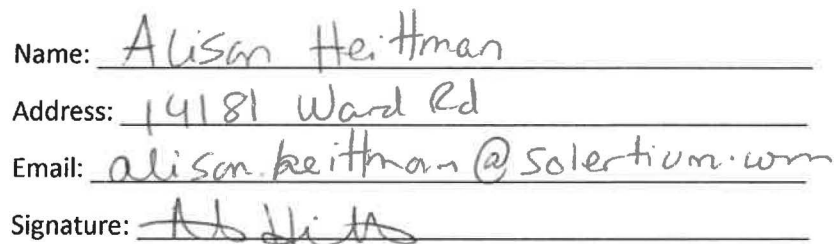 Name: Alison Heittman
Address: 14181 Ward Rd
Email: alison.heittman@solertium.com
Signature: